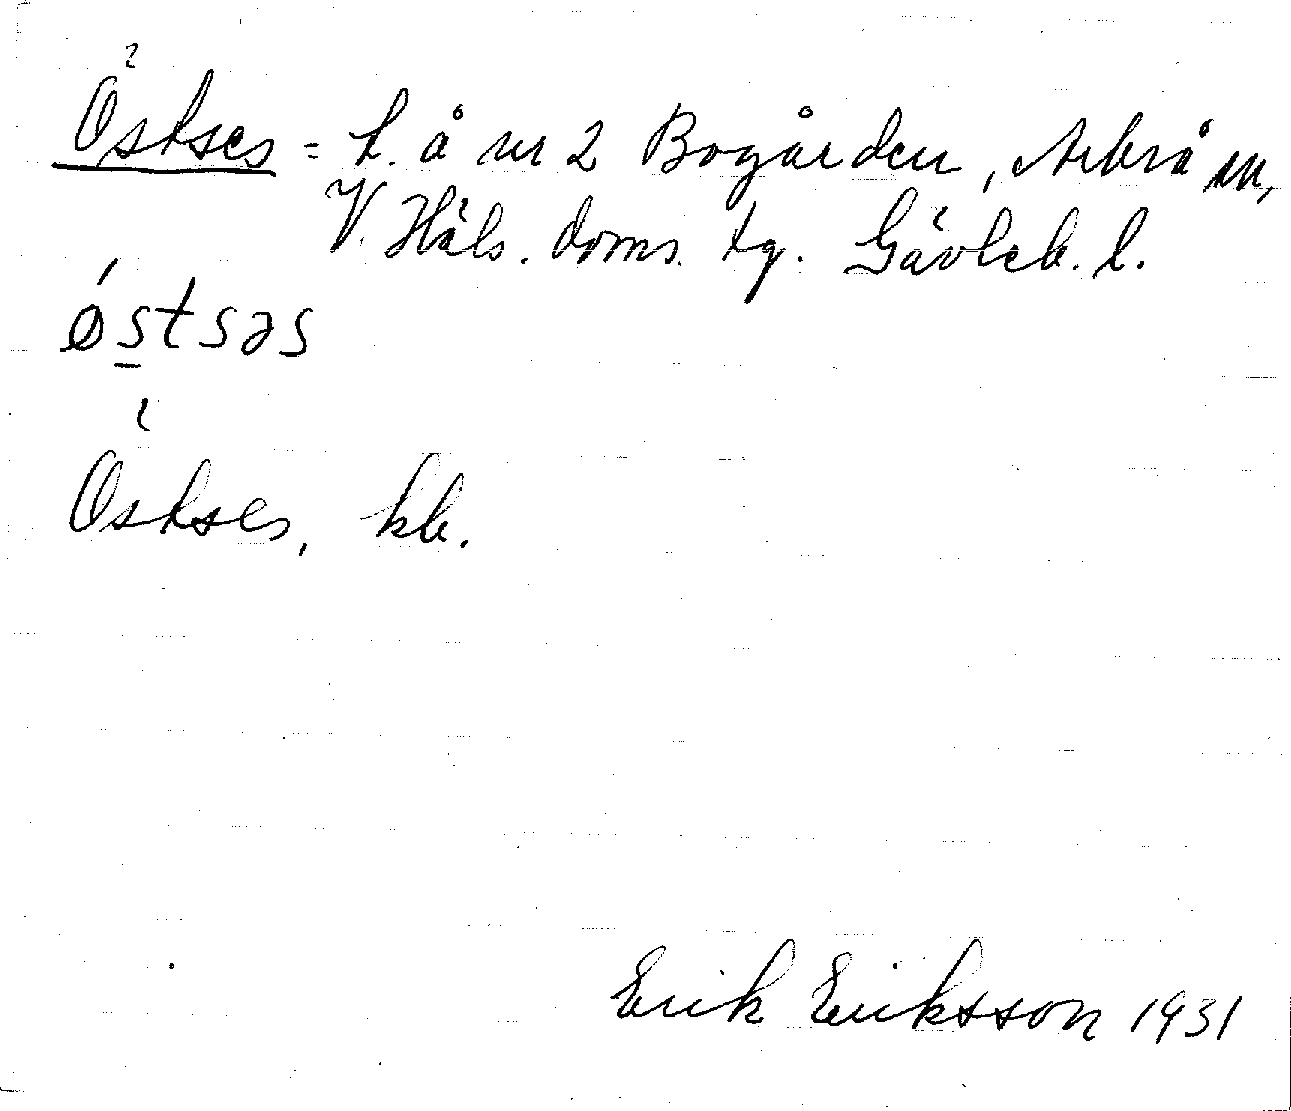 Östses = t. å nr 2 Bogården, Arbrå sn,
V. Häls. doms. tg. Gävleb. l.
ǿs̱tsəs
Östses, kb.
Erik Eriksson 1931